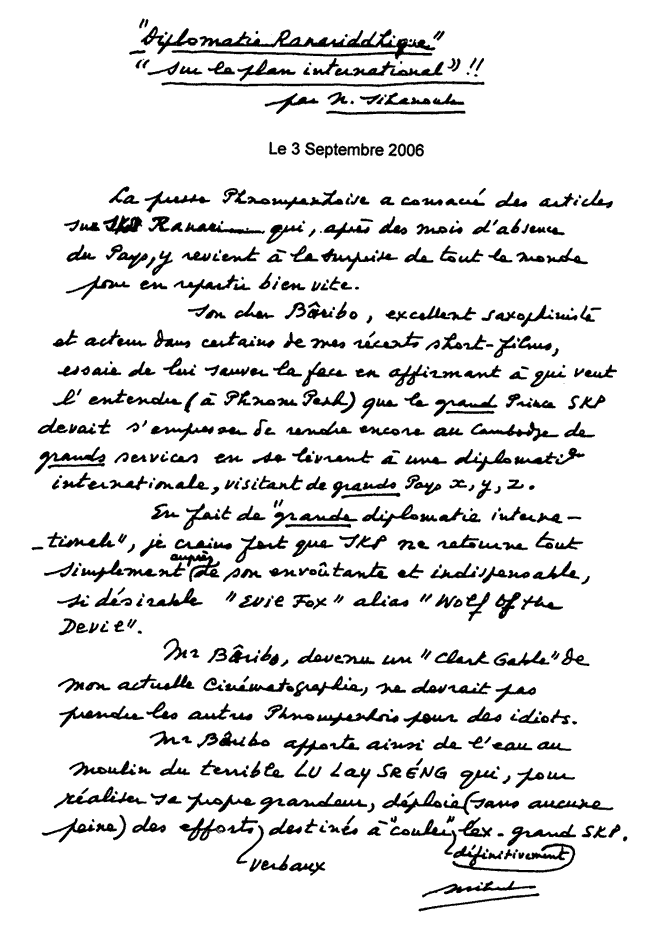 "Diplomatie Ranariddhique"
"sur le plan international" !!
par N. Sihanouk
Le 3 Septembre 2006
La presse Phnompenhoise a consacré des articles
sur SKP Ranari___ qui, après des mois d'absence
du Pays, y revient à la surprise de tout le monde
pour en repartir bien vite.
Son cher Bâribo, excellent saxophiniste
et acteur dans certains de mes récents short-films,
essaie de lui sauver la face en affirmant à qui veut
l'entendre (à Phnom Penh) que le grand Prince SKP
devait s'empresser de rendre encore au Cambodge de
grands services en se livrant à une diplomatie
internationale, visitant de grands Pays x, y, z.
En fait de "grande diplomatie interna-
-tionale", je crains fort que SKP ne retourne tout
simplement auprès de son envoûtante et indispensable,
si désirable "Evil Fox" alias "Wolf of the
Devil".
Mr Bâribo, devenu un "Clark Gable" de
mon actuelle Cinématographie, ne devrait pas
prendre les autres Phnompenhois pour des idiots.
Mr Bâribo apporte ainsi de l'eau au
moulin du terrible LU Lay SRÉNG qui, pour
réaliser sa propre grandeur, déploie (sans aucune
peine) des efforts verbaux destinés à "couler" définitivement l'ex-grand SKP.